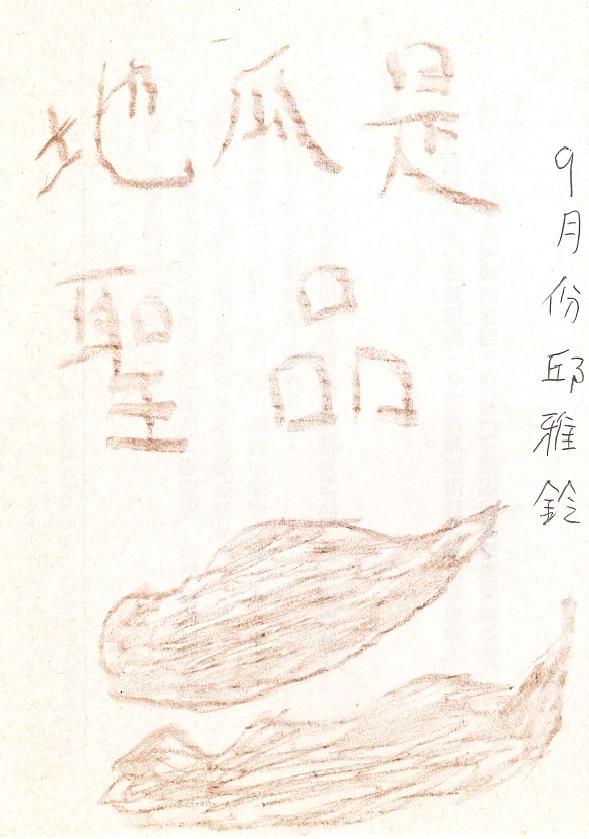 地瓜是
聖品
9月份邱雅鈴